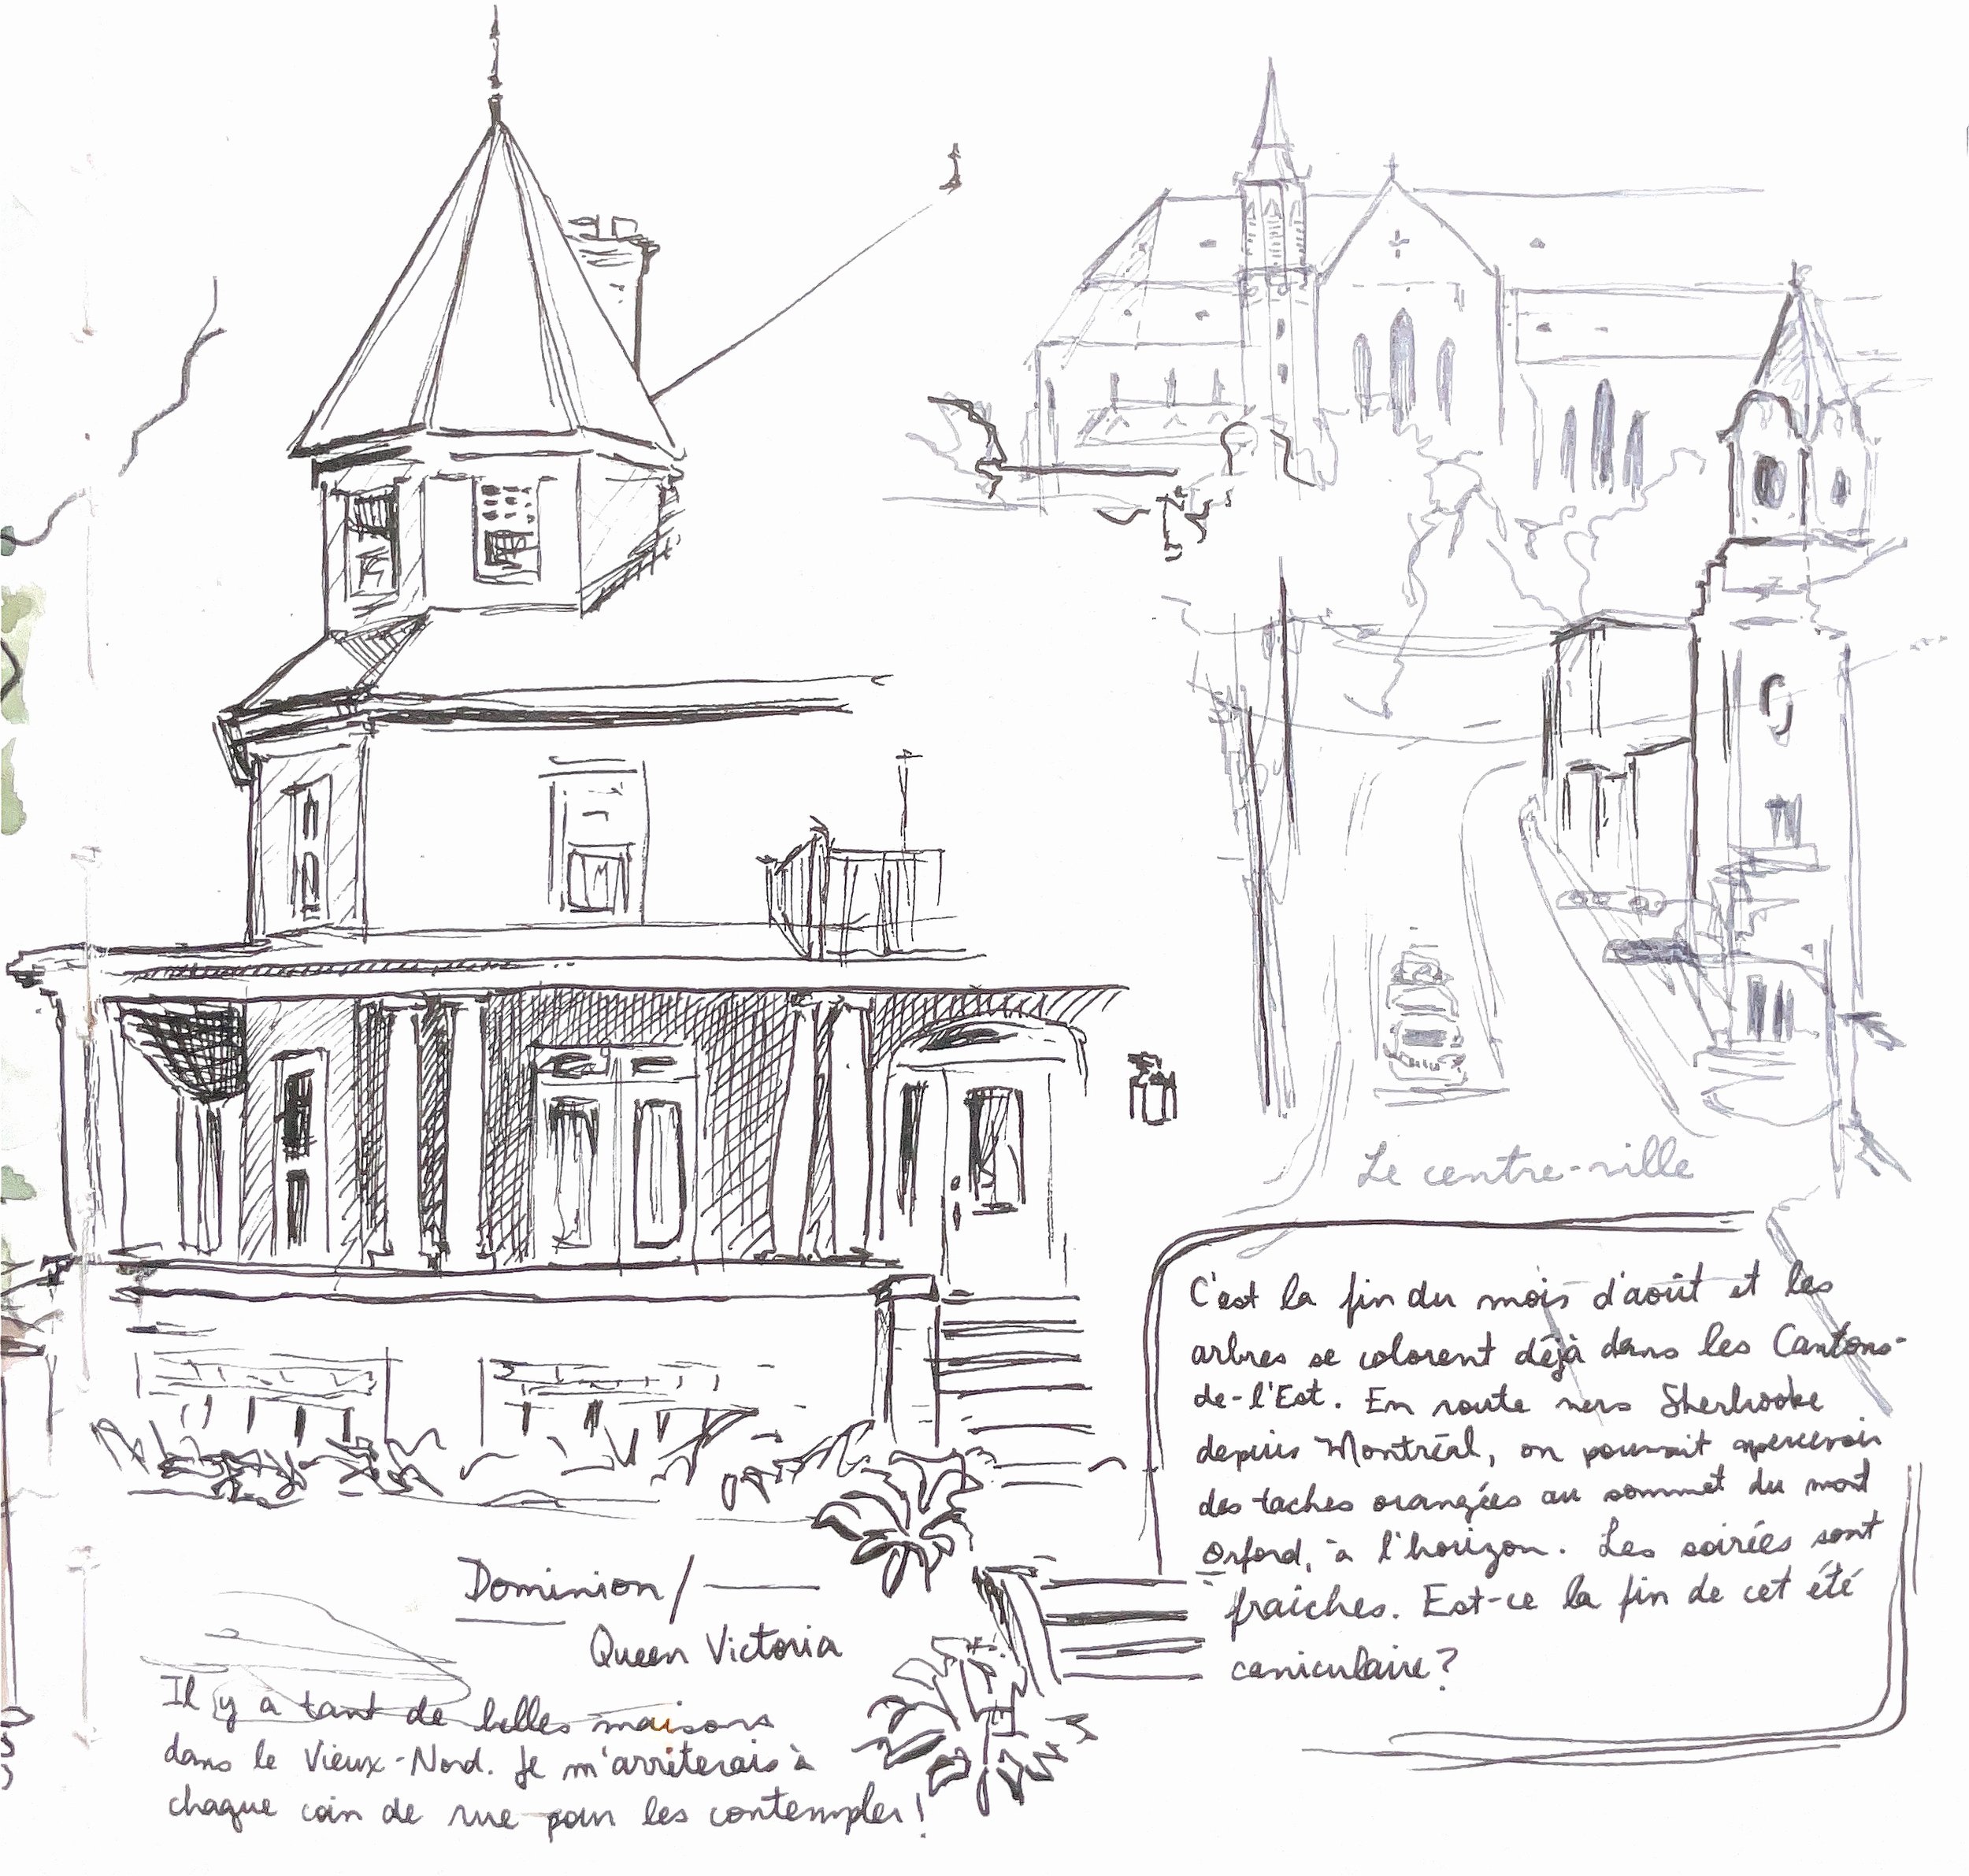 Le centre-ville
C'est la fin du mois d'août et les
arbres se colorent déjà dans les Cantons-
de-l'Est. En route vers Sherbrooke
depuis Montréal, on pouvait apercevoir
des taches orangées au sommet du mont
Orford, à l'horizon. Les soirées sont
fraiches. Est-ce la fin de cet été
caniculaire?
Dominion/
Queen Victoria
Il y a tant de belles maisons
dans le Vieux-Nord. Je m'arrêterais à
chaque coin de rue pour les contempler!